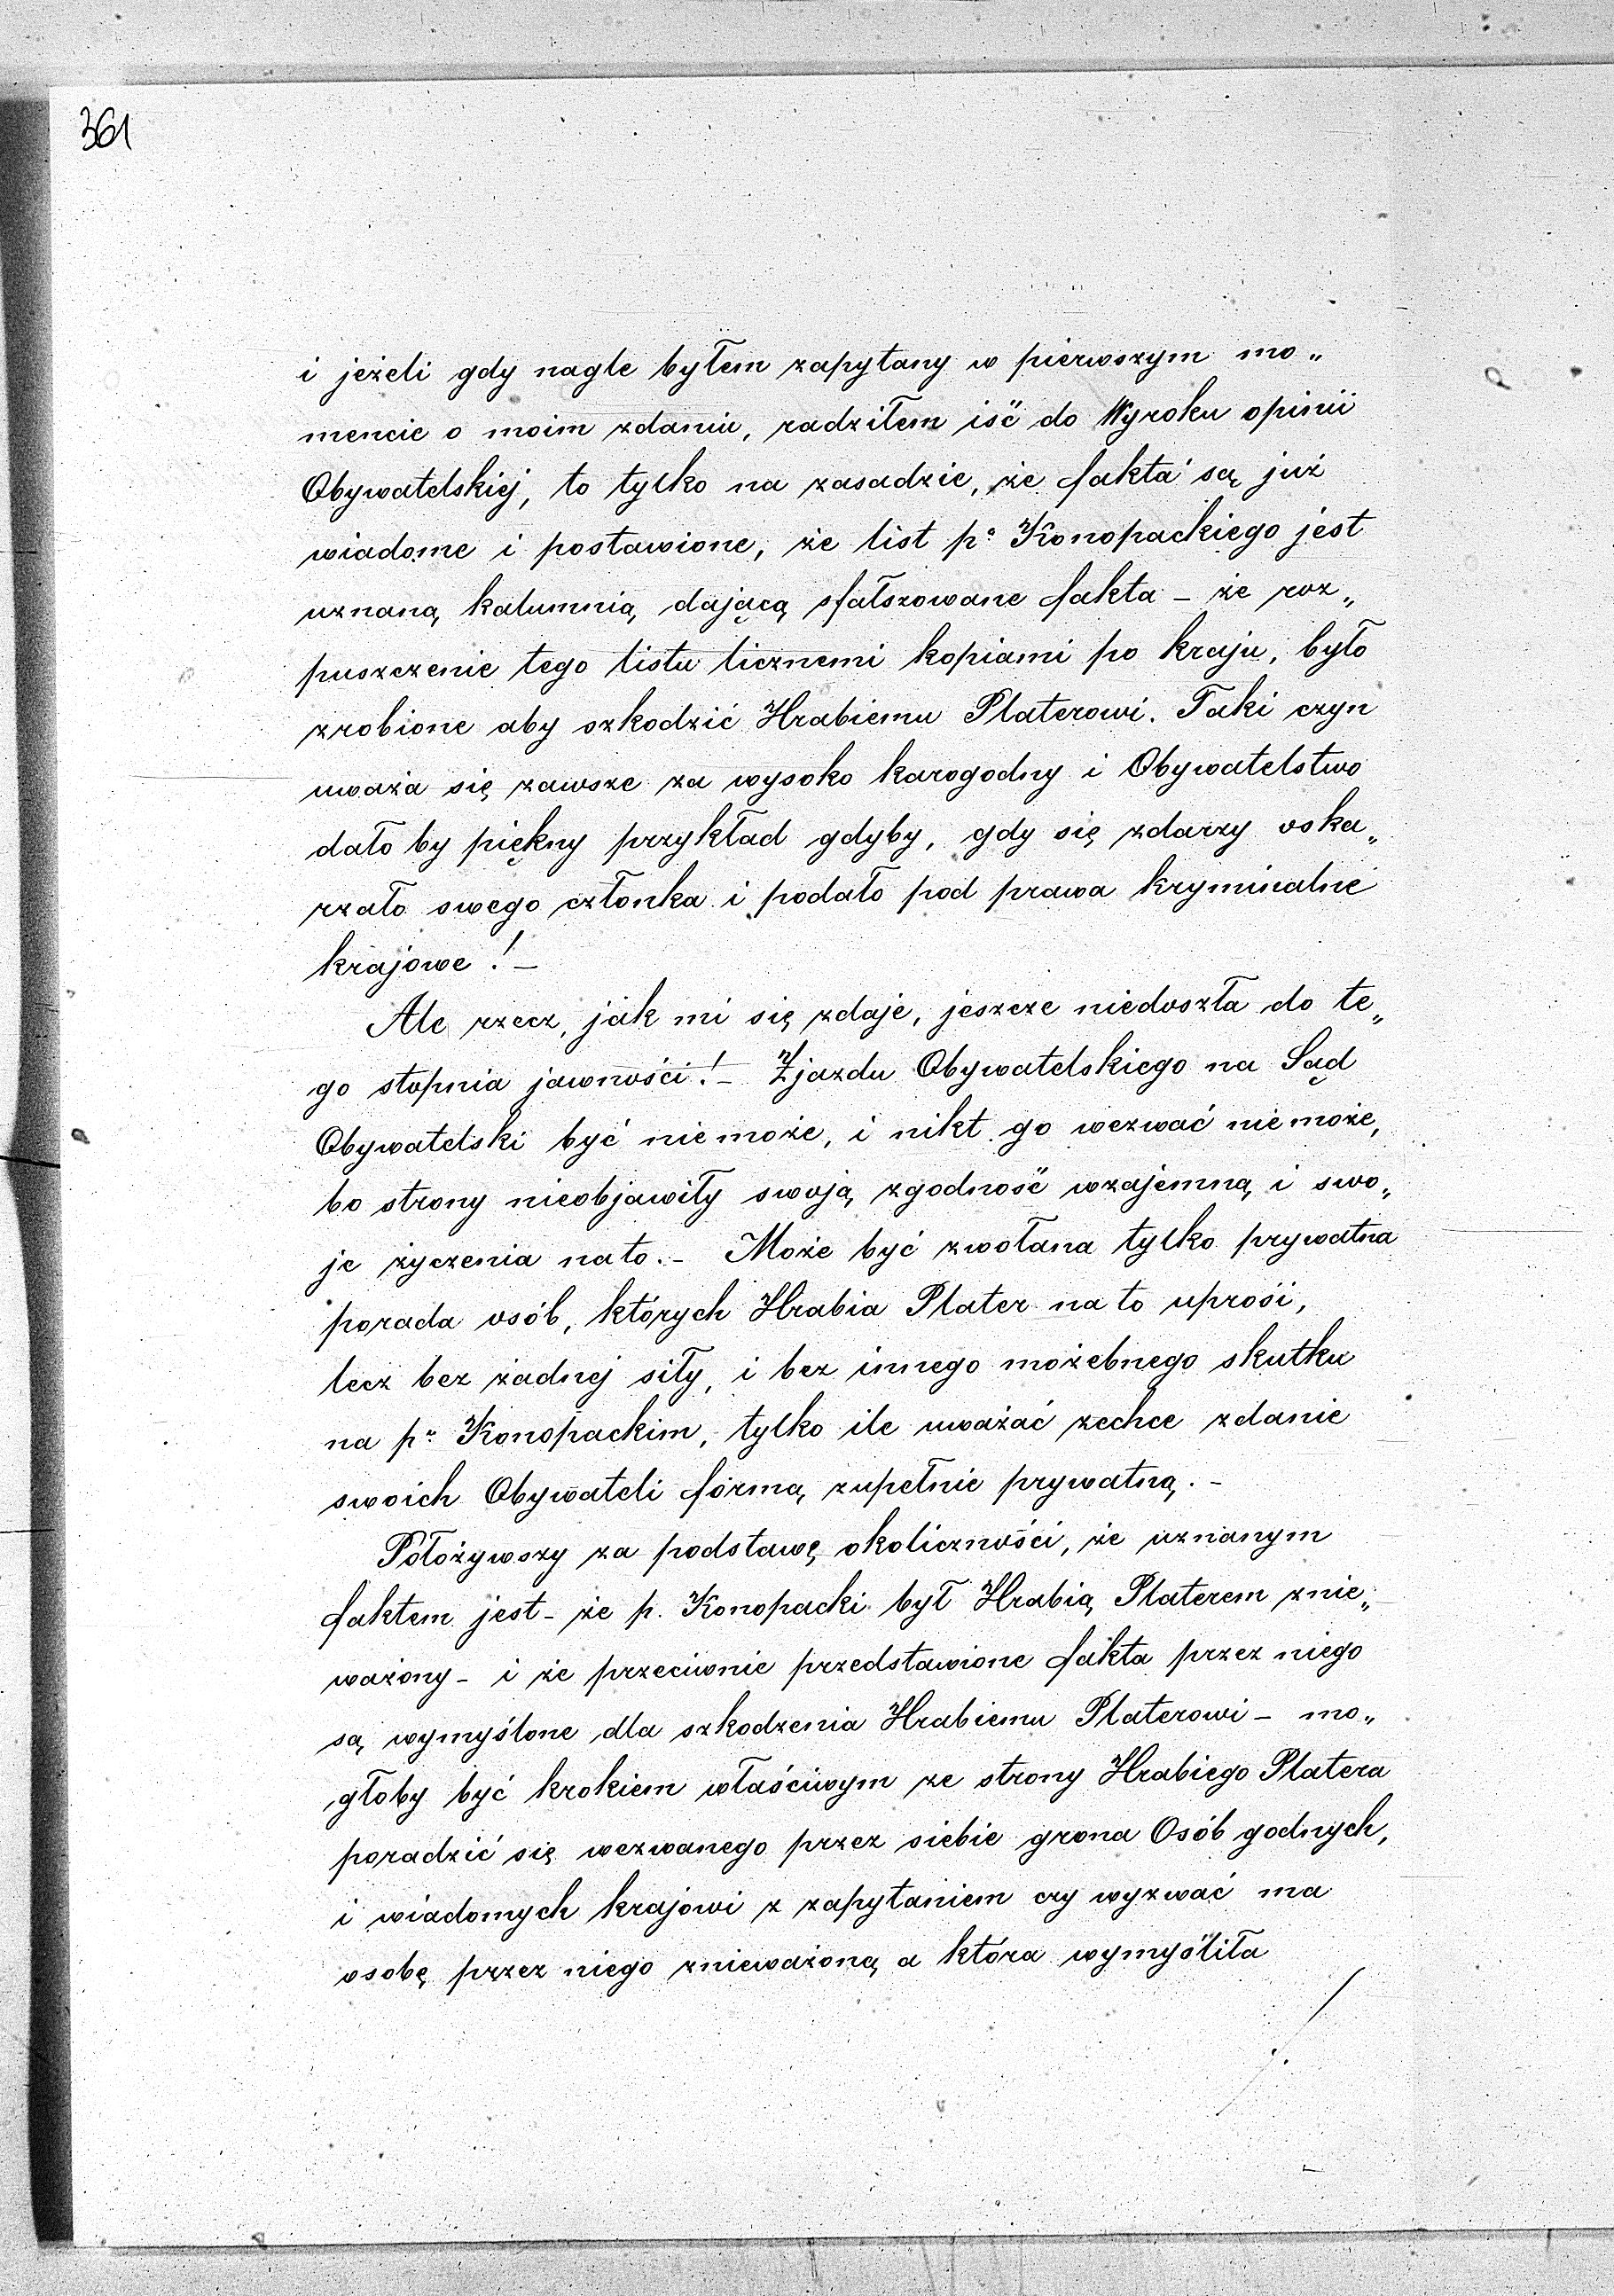 361
i jeżeli gdy nagle byłem zapytany w pierwszym mo„
mencie o moim zdaniu, radziłem iść do Wyroku opinii
Obywatelskiej, to tylko na zasadzie, że fakta są już
wiadome i postawione, że list pa Konopackiego jest
uznaną kalumnią, dającą sfałszowane fakta – że roz„
puszczenie tego listu licznemi kopiami po kraju, było
zrobione aby szkodzić Hrabiemu Platerowi. Taki czyn
uważa się zawsze za wysoko karogodny i Obywatelstwo
dało by piękny przykład gdyby, gdy się zdarzy oska„
rzało swego członka i podało pod prawa kryminalne
krajowe! –
Ale rzecz, jak mi się zdaje, jeszcze niedoszła do te„
go stopnia jawności! – Zjazdu Obywatelskiego na Sąd
Obywatelski być niemoże, i nikt go wezwać niemoże,
bo strony nieobjawiły swoją zgodność wzajemną i swo„
je życzenia nato. – Może być zwołana tylko prywatna
porada osób, których Hrabia Plater na to uprosi,
lecz bez żadnej siły, i bez innego możebnego skutku
na pu Konopackim, tylko ile uważać zechce zdanie
swoich Obywateli formą zupełnie prywatną. –
Położywszy za podstawę okoliczności, że uznanym
faktem jest – że p. Konopacki był Hrabią Platerem znie„
ważony – i że przeciwnie przedstawione fakta przez niego
są wymyślone dla szkodzenia Hrabiemu Platerowi – mo„
głoby być krokiem właściwym ze strony Hrabiego Platera
poradzić się wezwanego przez siebie grona Osób godnych,
i wiadomych krajowi z zapytaniem czy wyzwać ma
osobę przez niego znieważoną a która wymyśliła
./.